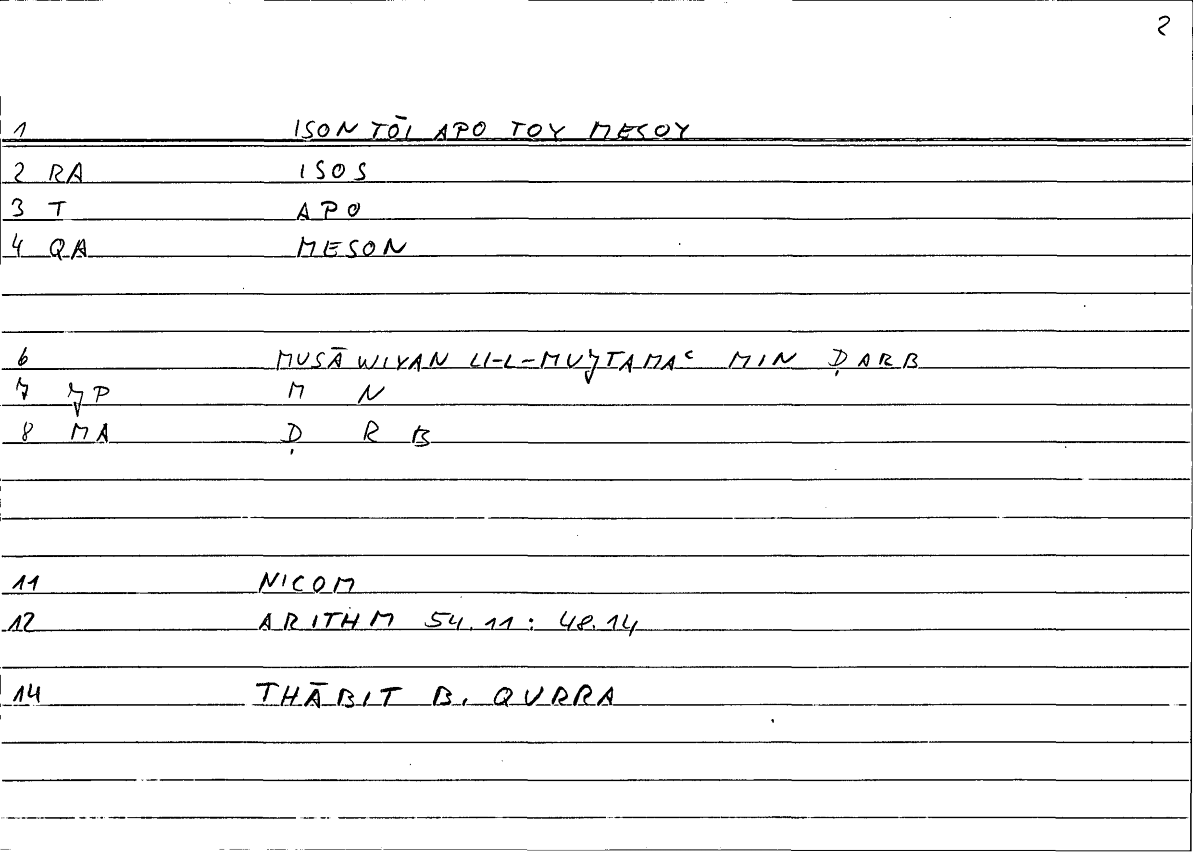 2
1 ISON TŌI APO TOY MESOY
2 RA ISOS
3 T APO
4 QA MESON
6 MUSĀWIYAN LI-L-MUJTAMAʿ MIN ḌARB
7 JP M N
8 MA Ḍ R B
11 NICOM
12 ARITHM 54.11 : 48.14
14 THĀBIT B. QURRA